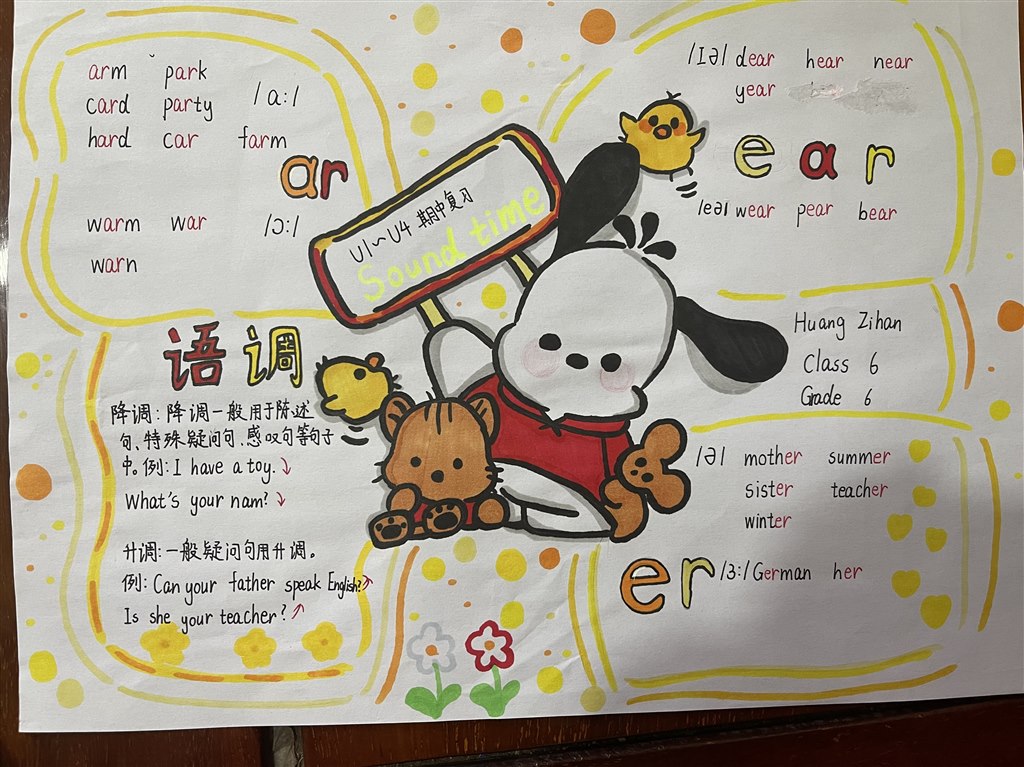 arm park
card party /ɑ:/
hard car farm
ar
warm war /ɔ:/
warn
U1~U4 期中复习
Sound time
/Iə/ dear hear near
year
ear
/eə/ wear pear bear
语调
降调:降调一般用于陈述
句、特殊疑问句、感叹句等句子
中。例:I have a toy.↘
What's your nam?↘
升调:一般疑问句用升调。
例:Can your father speak English?↗
Is she your teacher?↗
Huang Zihan
Class 6
Grade 6
/ə/ mother summer
sister teacher
winter
er /3:/ German her